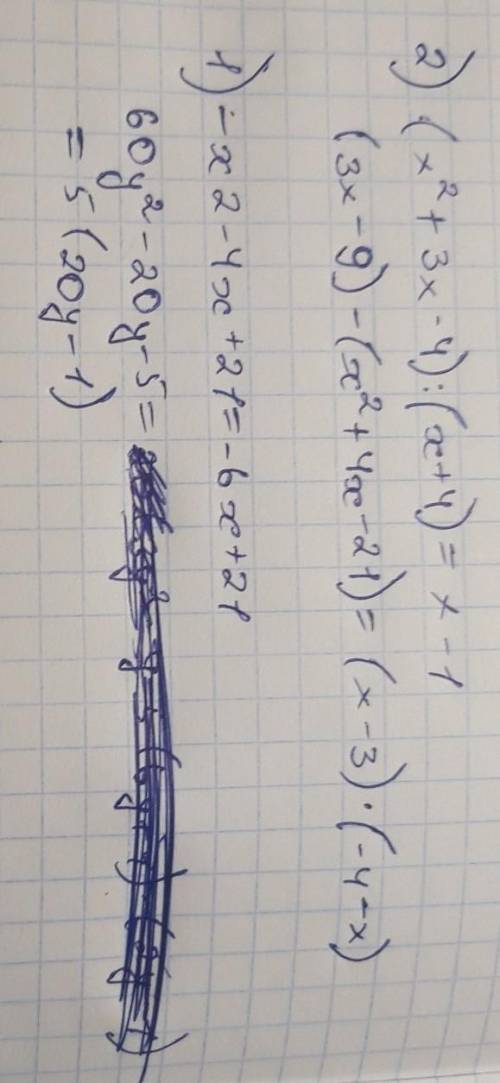 2) (x² + 3x - 4) : (x + 4) = x - 1
(3x - 9) - (x² + 4x - 21) = (x - 3) · (-4 - x)
1) - x 2 - 4x + 21 = -6x + 21
60y² - 20y - 5 =
= 5 (20y - 1)